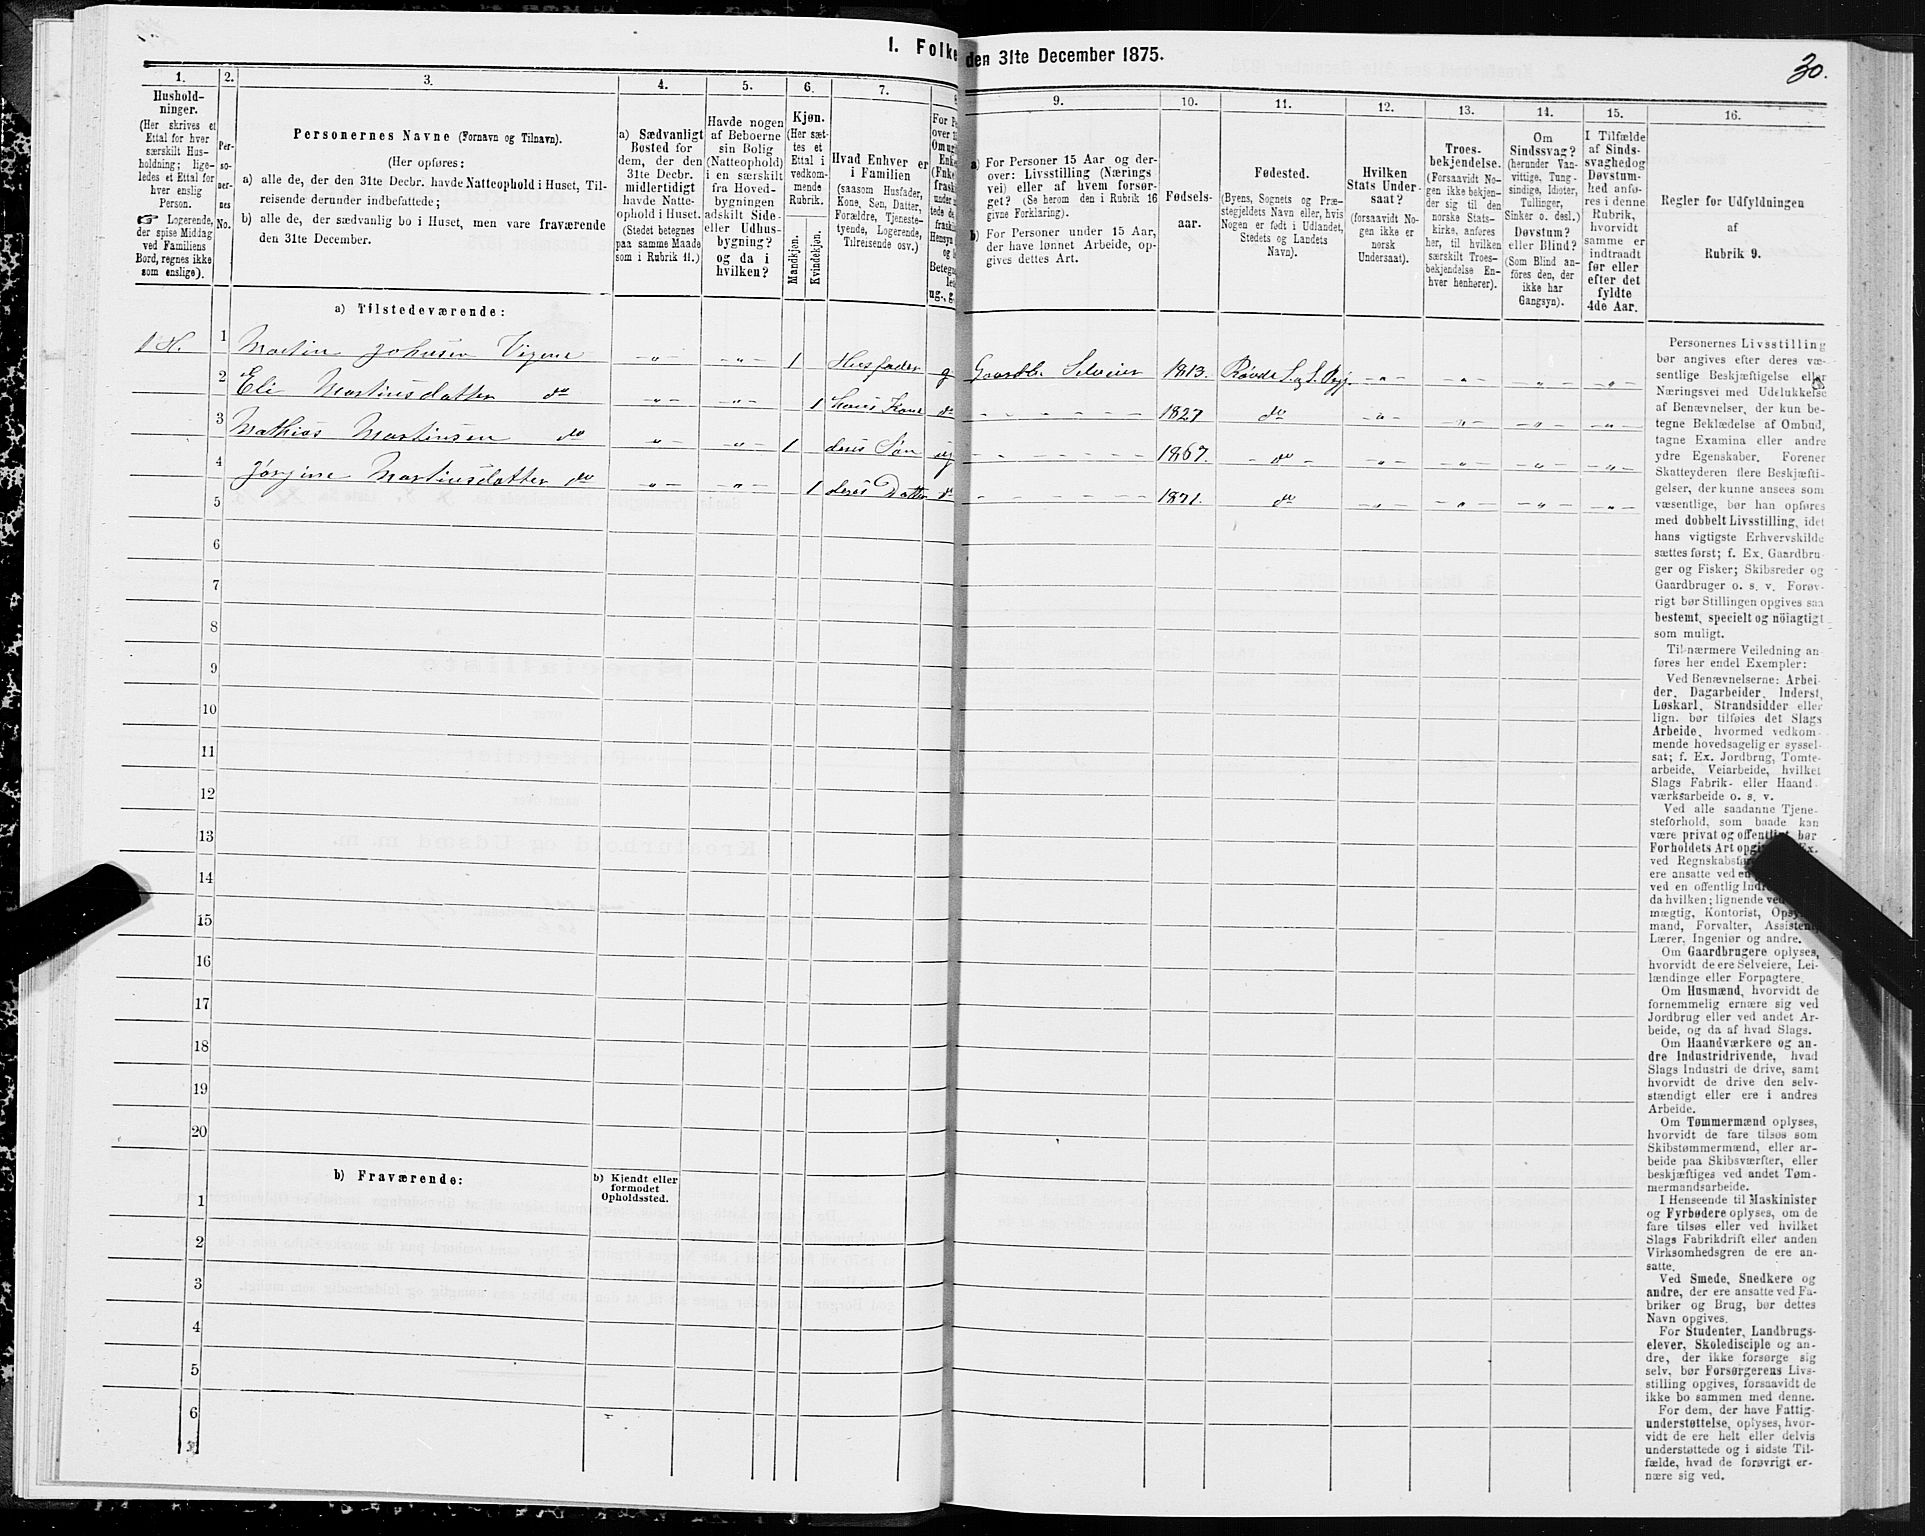 I. Folke
den 31te December 1875.
30.
1.
Hushold-
ninger.
(Her skrives et
Ettal for hver
særskilt Hus-
holdning; lige-
ledes et Ettal for
hver enslig
Person.
☞ Logerende,
der spise Middag
ved Familiens
Bord, regnes ikke
som enslige).
2.
Per-
so-
ner-
nes
No.
3.
Personernes Navne (Fornavn og Tilnavn).
(Her opføres:
a) alle de, der den 31te Decbr. havde Natteophold i Huset, Til-
reisende derunder indbefattede;
b) alle de, der sædvanlig bo i Huset, men vare fraværende
den 31te December.
4.
a) Sædvanligt
Bosted for
dem, der den
31te Decbr.
midlertidigt
havde Natte-
ophold i Huset.
(Stedet betegnes
paa samme Maade
som i Rubrik 11.)
5.
Havde nogen
af Beboerne
sin Bolig
(Natteophold)
i en særskilt
fra Hoved-
bygningen
adskilt Side-
eller Udhus-
bygning?
og da i
hvilken?
6.
Kjøn.
(Her sæt-
tes et
Ettal i
vedkom-
mende
Rubrik.
Mandkjøn.
Kvindekjøn.
7.
Hvad Enhver er
i Familien
(saasom Husfader,
Kone, Søn, Datter,
Forældre, Tjeneste-
tyende, Logerende,
Tilreisende osv.)
8
For Pe
over 1
Om ug
Enke
(Enke
fraski
under
tede de
fraskil
Hensyn
og b
Betegn
le
ug., g.
9.
a) For Personer 15 Aar og der-
over: Livsstilling (Nærings
vei) eller af hvem forsør-
get? (Se herom den i Rubrik 16
givne Forklaring).
b) For Personer under 15 Aar,
der have lønnet Arbeide, op-
gives dettes Art.
10.
Fødsels-
aar.
11.
Fødested.
(Byens, Sognets og Præ-
stegjeldets Navn eller, hvis
Nogen er født i Udlandet,
Stedets og Landets
Navn).
12.
Hvilken
Stats Under-
saat?
(forsaavidt No-
gen ikke er
norsk
Undersaat).
13.
Troes-
bekjendelse.
(Forsaavidt No-
gen ikke bekjen-
der sig til den
norske Stats-
kirke, anføres
her, til hvilken
særskilt Troes-
bekjendelse En-
hver henhører).
14.
Om
Sindssvag?
(herunder Van-
vittige, Tung-
sindige, Idioter,
Tullinger,
Sinker o. desl.)
Døvstum?
eller Blind?
(Som Blind an-
føres den, der
ikke har
Gangsyn).
15.
I Tilfælde
af Sinds-
svaghedog
Døvstum-
hed anfø-
res i denne
Rubrik,
hvorvidt
samme er
indtraadt
før eller
efter det
fyldte
4de Aar.
16.
Regler for Udfyldningen
af
Rubrik 9.
a) Tilstedeværende:
1 H. 1 Martin Johnsen -„- -„- 1 Husfader g Gaardbr. Selveier 1813. -„- -„- -„- -„-
2 Eli Martinsdatter do -„- -„- 1 hans Kone do - - - - - 1827 do -„- -„- -„- -„-
3 Mathias Martinsen do -„- -„- 1 deres Søn ug - - - - - 1867. - do - -„- -„- -„- -„-
4 Jørgine Martinsdatter do -„- -„- 1 deres Datter do - - - - - 1871. do -„- -„- -„- -„-
5
6
7
8
9
10
11
12
13
14
15
16
17
18
19
20
b) Fraværende:
b) Kjendt eller
formodet
Opholdssted.
1
2
3
4
5
6
Personernes Livsstilling
bør angives efter deres væ-
sentlige Beskjæftigelse eller
Næringsvei med Udelukkelse
af Benævnelser, der kun be-
tegne Beklædelse af Ombud,
tagne Examina eller andre
ydre Egenskaber. Forener
Skatteyderen flere Beskjæfti-
gelser, der kunne ansees som
væsentlige, bør han opføres
med dobbelt Livsstilling, idet
hans vigtigste Erhvervskilde
sættes først; f. Ex. Gaardbru-
ger og Fisker; Skibsreder og
Gaardbruger o. s. v. Forøv-
rigt bør Stillingen opgives saa
bestemt, specielt og nöiagtigt
som muligt.
Til nærmere Veiledning an-
føres her endel Exempler:
Ved Benævnelserne: Arbei-
der, Dagarbeider, Inderst,
Løskarl, Strandsidder eller
lign. bør tilføies det Slags
Arbeide, hvormed vedkom-
mende hovedsagelig er syssel-
sat; f. Ex. Jordbrug, Tomte-
arbeide, Veiarbeide, hvilket
Slags Fabrik- eller Haand-
værksarbeide o. s. v.
Ved alle saadanne Tjene-
steforhold, som baade kan
være privat og offentligt, bør
Forholdets Art opgi Ex.
ved Regnskabsfør
ere ansatte ved en
ved en offentlig Ind
da hvilken; lignende ved
mægtig, Kontorist, Opsy
mand, Forvalter, Assistent,
Lærer, Ingeniør og andre.
Om Gaardbrugere oplyses,
hvorvidt de ere Selveiere, Lei-
lændinge eller Forpagtere.
Om Husmænd, hvorvidt de
fornemmelig ernære sig ved
Jordbrug eller ved andet Ar-
beide, og da af hvad Slags.
Om Haandværkere og an-
dre Industridrivende, hvad
Slags Industri de drive, samt
hvorvidt de drive den selv-
stændigt eller ere i andres
Arbeide.
Om Tømmermænd oplyses,
hvorvidt de fare tilsøs som
Skibstømmermænd, eller ar-
beide paa Skibsværfter, eller
beskjæftiges ved andet Tøm-
mermandsarbeide.
I Henseende til Maskinister
og Fyrbødere oplyses, om de
fare tilsøs eller ved hvilket
Slags Fabrikdrift eller anden
Virksomhedsgren de ere an-
satte.
Ved Smede, Snedkere og
andre, der ere ansatte ved Fa-
briker og Brug, bør dettes
Navn opgives.
For Studenter, Landbrugs-
elever, Skoledisciple og an-
dre, der ikke forsørge sig
selv, bør Forsørgerens Livs-
stilling opgives, forsaavidt de
ikke bo sammen med denne.
For dem, der have Fattig-
understøttelse, oplyses, hvor-
vidt de ere helt eller delvis
understøttede og i sidste Til-
fælde, hvad de forøvrigt er-
nære sig ved.